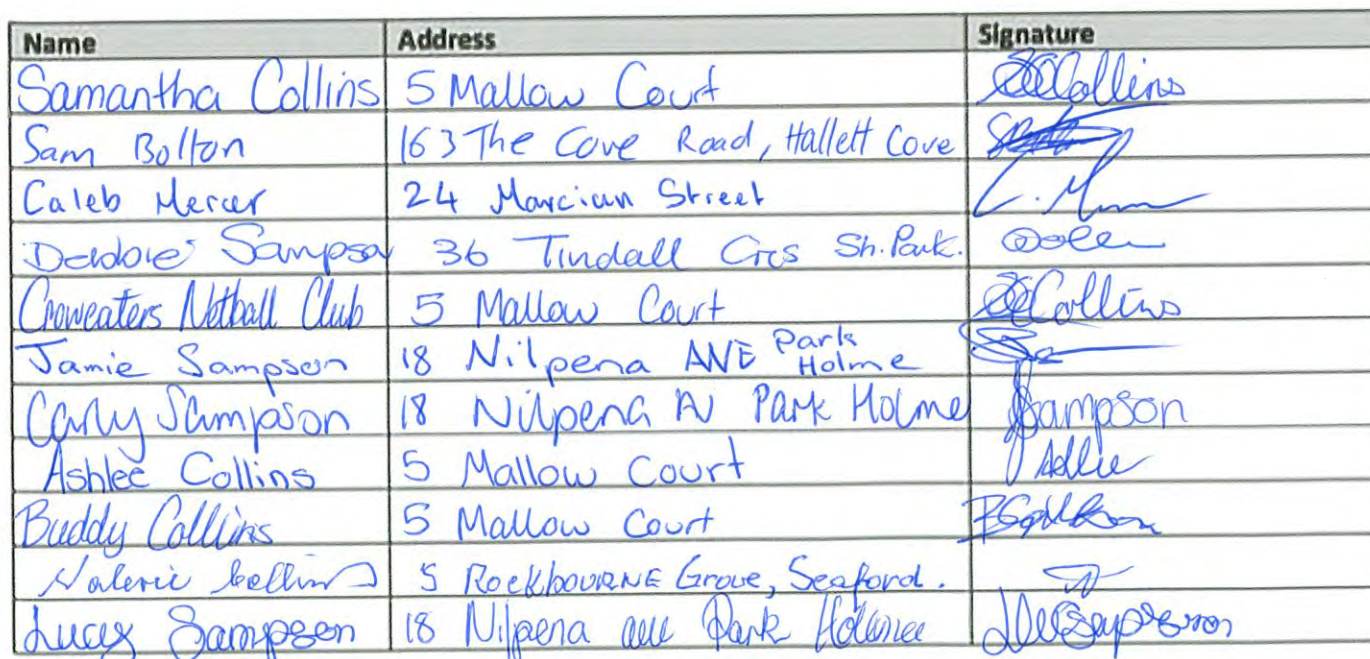 Name Address Signature
Samantha Collins 5 Mallow Court SCollins
Sam Bolton 163 The Cove Road, Hallett Cove
Caleb Mercer 24 Marcian Street C. M
Debbie Sampson 36 Tindall Crcs Sh. Park.
Croweaters Netball Club 5 Mallow Court SCollins
Jamie Sampson 18 Nilpena AVE Park Holme
Carly Sampson 18 Nilpena AV Park Holme Sampson
Ashlee Collins 5 Mallow Court
Buddy Colllins 5 Mallow Court
Valerie Collins 5 RockbourNE Grove, Seaford.
Lucy Sampson 18 Nilpena ave Park Holme